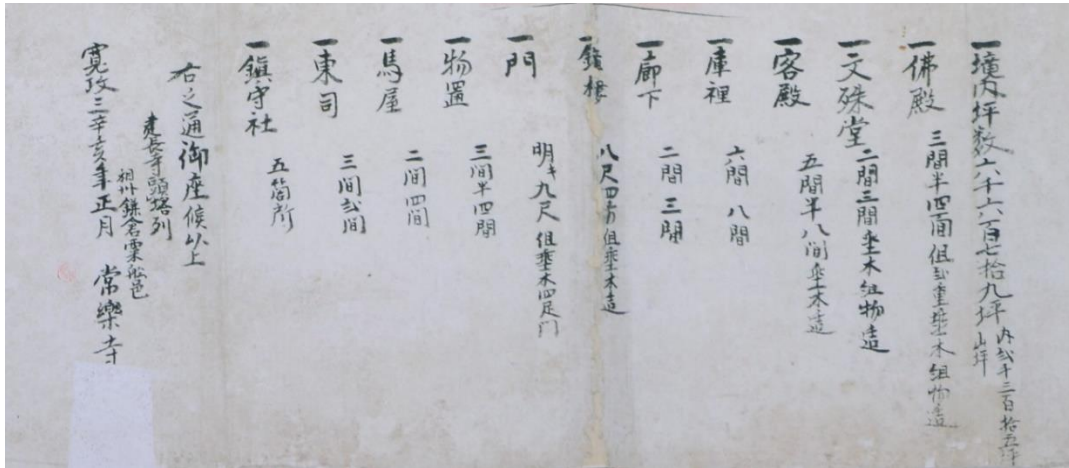 一境内坪数六千六百七拾九坪 内弐千三百拾五坪 山坪
一佛殿 三間半四面 但弐重垂木組物造
一文殊堂 二間三間垂木組物造
一客殿 五間半八間垂木造
一庫裡 六間 八間
一廊下 二間 三間
一鐘楼 八尺四方但垂木造
一門 明キ九尺 但垂木四足門
一物置 三間半四間
一馬屋 二間四間
一東司 三間弐間
一鎮守社 五箇所
右之通御座候以上
建長寺頭塔列
相州鎌倉粟船邑
寛政三辛亥年正月 常樂寺